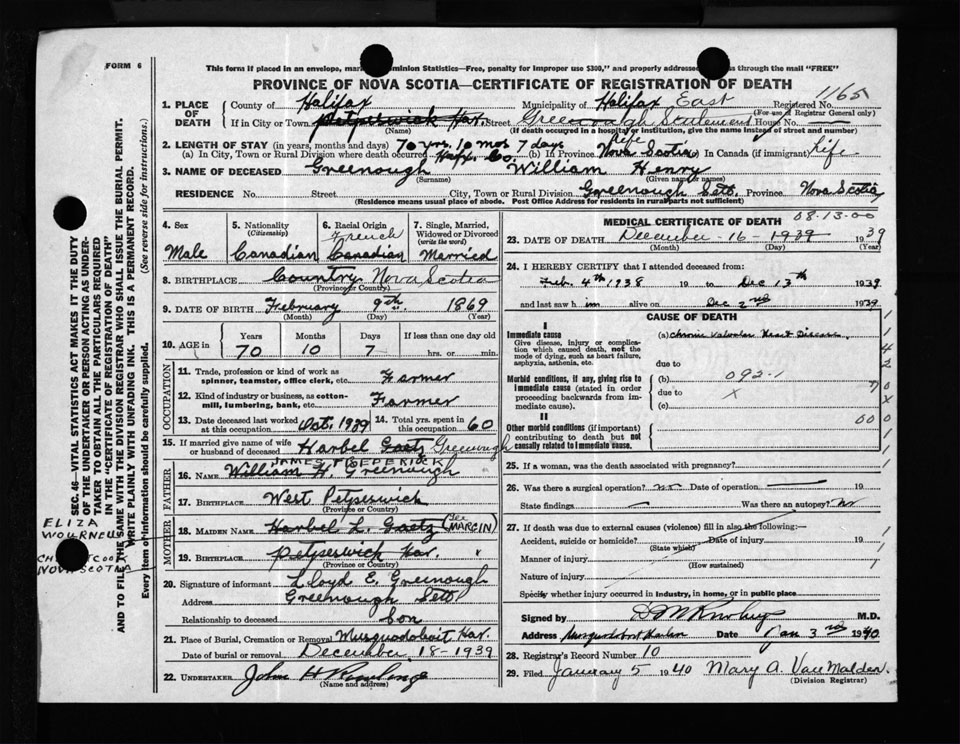 FORM 6
This form if placed in an envelope, mar Dominion Statistics—Free, penalty for improper use $300," and properly addresse s through the mail "FREE"
PROVINCE OF NOVA SCOTIA—CERTIFICATE OF REGISTRATION OF DEATH
1165
1. PLACE OF DEATH
County of Halifax Municipality of Halifax East Registered No.
(For use of Registrar General only)
If in City or Town Petpeswick Har. Street Greenough Settlement House No. —
(Name) (If death occurred in a hospital or institution, give the name instead of street and number)
2. LENGTH OF STAY (in years, months and days) 70 yrs, 10 mos 7 days Life
(a) In City, Town or Rural Division where death occurred Hfx. Co. (b) In Province Nova Scotia (c) In Canada (if immigrant) Life
3. NAME OF DECEASED Greenough William Henry
(Surname) (Given name or names)
RESIDENCE No. Street City, Town or Rural Division Greenough Sett. Province Nova Scotia
(Residence means usual place of abode. Post Office Address for residents in rural parts not sufficient)
4. Sex Male
5. Nationality (Citizenship) Canadian
6. Racial Origin French Canadian
7. Single, Married, Widowed or Divorced (write the word) Married
8. BIRTHPLACE Country Nova Scotia
(Province or Country)
9. DATE OF BIRTH February 9th. 1869
(Month) (Day) (Year)
10. AGE in Years Months Days If less than one day old
70 10 7 hrs. or min.
OCCUPATION
11. Trade, profession or kind of work as spinner, teamster, office clerk, etc. Farmer
12. Kind of industry or business, as cotton-mill, lumbering, bank, etc. Farmer
13. Date deceased last worked at this occupation Oct. 1939
14. Total yrs. spent in this occupation 60
15. If married give name of wife or husband of deceased Harbel Gaetz Greenough
FATHER
JAMES FREDERICK
16. Name William H. Greenough
17. Birthplace West Petpeswick
(Province or Country)
MOTHER
18. MAIDEN NAME Harbel L. Gaetz (See MARGIN)
19. Birthplace Petpeswick Har. "
(Province or Country)
20. Signature of informant Lloyd E. Greenough
Address Greenough Sett.
Relationship to deceased Son
21. Place of Burial, Cremation or Removal Musquodoboit Har.
Date of burial or removal December 18-1939
22. UNDERTAKER John H Rowlings
(Name and address)
MEDICAL CERTIFICATE OF DEATH
08-13-00
23. DATE OF DEATH December -16 - 1939 1939
(Month) (Day)
24. I HEREBY CERTIFY that I attended deceased from:
Feb. 4th 1938 19 to Dec 13th 1939
and last saw him alive on Dec 2nd 1939
CAUSE OF DEATH
I
Immediate cause
Give disease, injury or complication which caused death, not the mode of dying, such as heart failure, asphyxia, asthenia, etc.
(a) Chronic Valvular Heart Disease,
due to
Morbid conditions, if any, giving rise to immediate cause (stated in order proceeding backwards from immediate cause).
(b) 092-1
due to X
(c)
II
Other morbid conditions (if important) contributing to death but not causally related to immediate cause.
25. If a woman, was the death associated with pregnancy?
26. Was there a surgical operation? no Date of operation —
State findings — Was there an autopsy? No
27. If death was due to external causes (violence) fill in also the following:—
Accident, suicide or homicide? Date of injury 19
(State which)
Manner of injury
(How sustained)
Nature of injury
Specify whether injury occurred in industry, in home, or in public place
Signed by M.D.
Address Musquodoboit Harbour Date Jan 3rd 1940
28. Registrar's Record Number 10
29. Filed January 5 1940 Mary A. Van Malder.
(Division Registrar)
SEC. 46—VITAL STATISTICS ACT MAKES IT THE DUTY
OF THE UNDERTAKER OR PERSON ACTING AS UNDER-
TAKER TO OBTAIN ALL THE PARTICULARS REQUIRED
IN THE "CERTIFICATE OF REGISTRATION OF DEATH"
AND TO FILE THE SAME WITH THE DIVISION REGISTRAR WHO SHALL ISSUE THE BURIAL PERMIT.
WRITE PLAINLY WITH UNFADING INK. THIS IS A PERMANENT RECORD.
Every item of information should be carefully supplied. (See reverse side for instructions.)
ELIZA
WOURNEU
CH COOK
NOVA SCOTIA